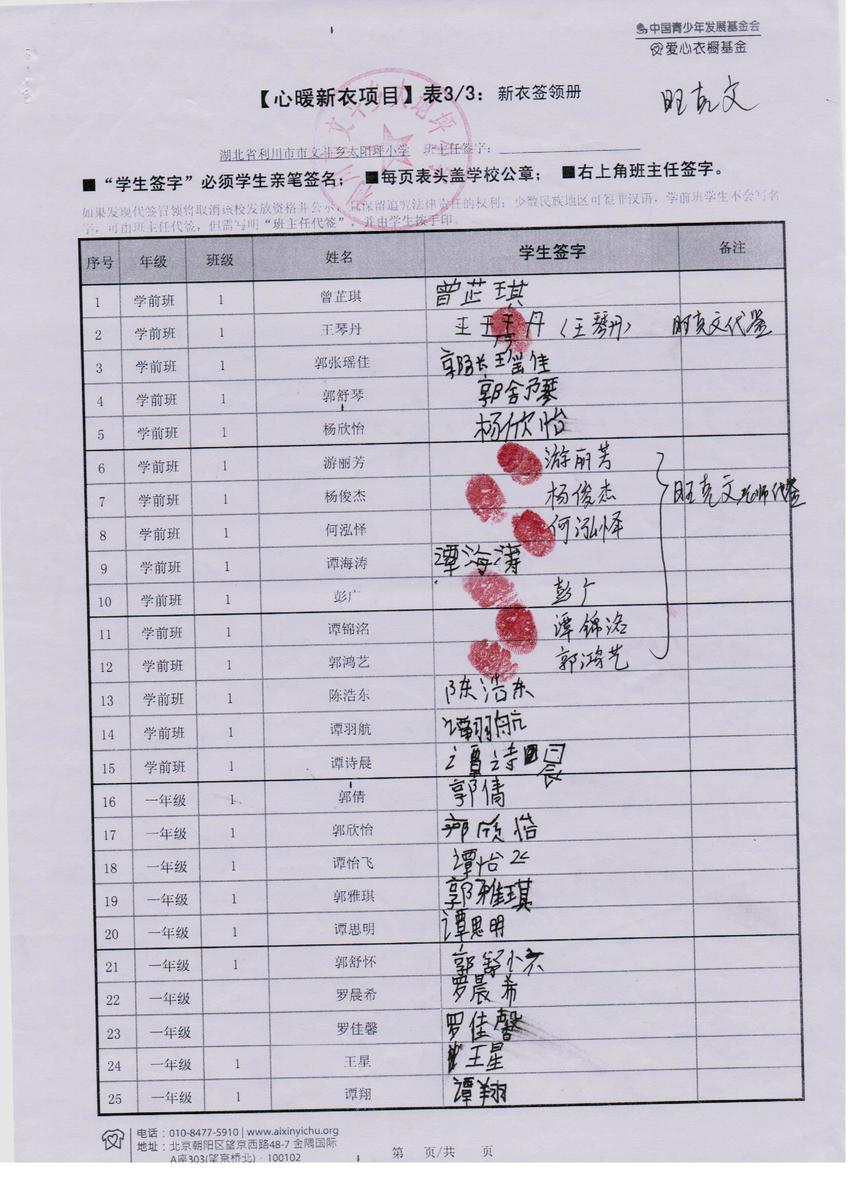 中国青少年发展基金会
爱心衣橱基金
【心暖新衣项目】表3/3：新衣签领册
湖北省利川市市文斗乡太阳坪小学 班主任签字：
■“学生签字”必须学生亲笔签名； ■每页表头盖学校公章； ■右上角班主任签字。
如果发现代签冒领将取消该校发放资格并公示，且保留追究法律责任的权利；少数民族地区可签非汉语，学前班学生不会写名
字，可由班主任代签，但需写明“班主任代签”，并由学生按手印。
序号 年级 班级 姓名 学生签字 备注
1 学前班 1 曾芷琪 曾芷琪
2 学前班 1 王琴丹 王 王 丹（王琴丹） 代签
3 学前班 1 郭张瑶佳
4 学前班 1 郭舒琴
5 学前班 1 杨欣怡 杨欣怡
6 学前班 1 游丽芳 游丽芳
7 学前班 1 杨俊杰 杨俊杰 老师代签
8 学前班 1 何泓怿 何泓怿
9 学前班 1 谭海涛 谭海涛
10 学前班 1 彭广 彭广
11 学前班 1 谭锦洺 谭锦洺
12 学前班 1 郭鸿艺 郭鸿艺
13 学前班 1 陈浩东 陈浩东
14 学前班 1 谭羽航 谭羽航
15 学前班 1 谭诗晨
16 一年级 1 郭倩 郭倩
17 一年级 1 郭欣怡 郭欣怡
18 一年级 1 谭怡飞 谭怡飞
19 一年级 1 郭雅琪 郭雅琪
20 一年级 1 谭思明 谭思明
21 一年级 1 郭舒怀 郭舒怀
22 一年级 罗晨希 罗晨希
23 一年级 罗佳馨 罗佳馨
24 一年级 1 王星 王星
25 一年级 1 谭翔 谭翔
电话：010-8477-5910 | www.aixinyichu.org
地址：北京朝阳区望京西路48-7 金隅国际
A座303(望京桥北)·100102
第 页/共 页